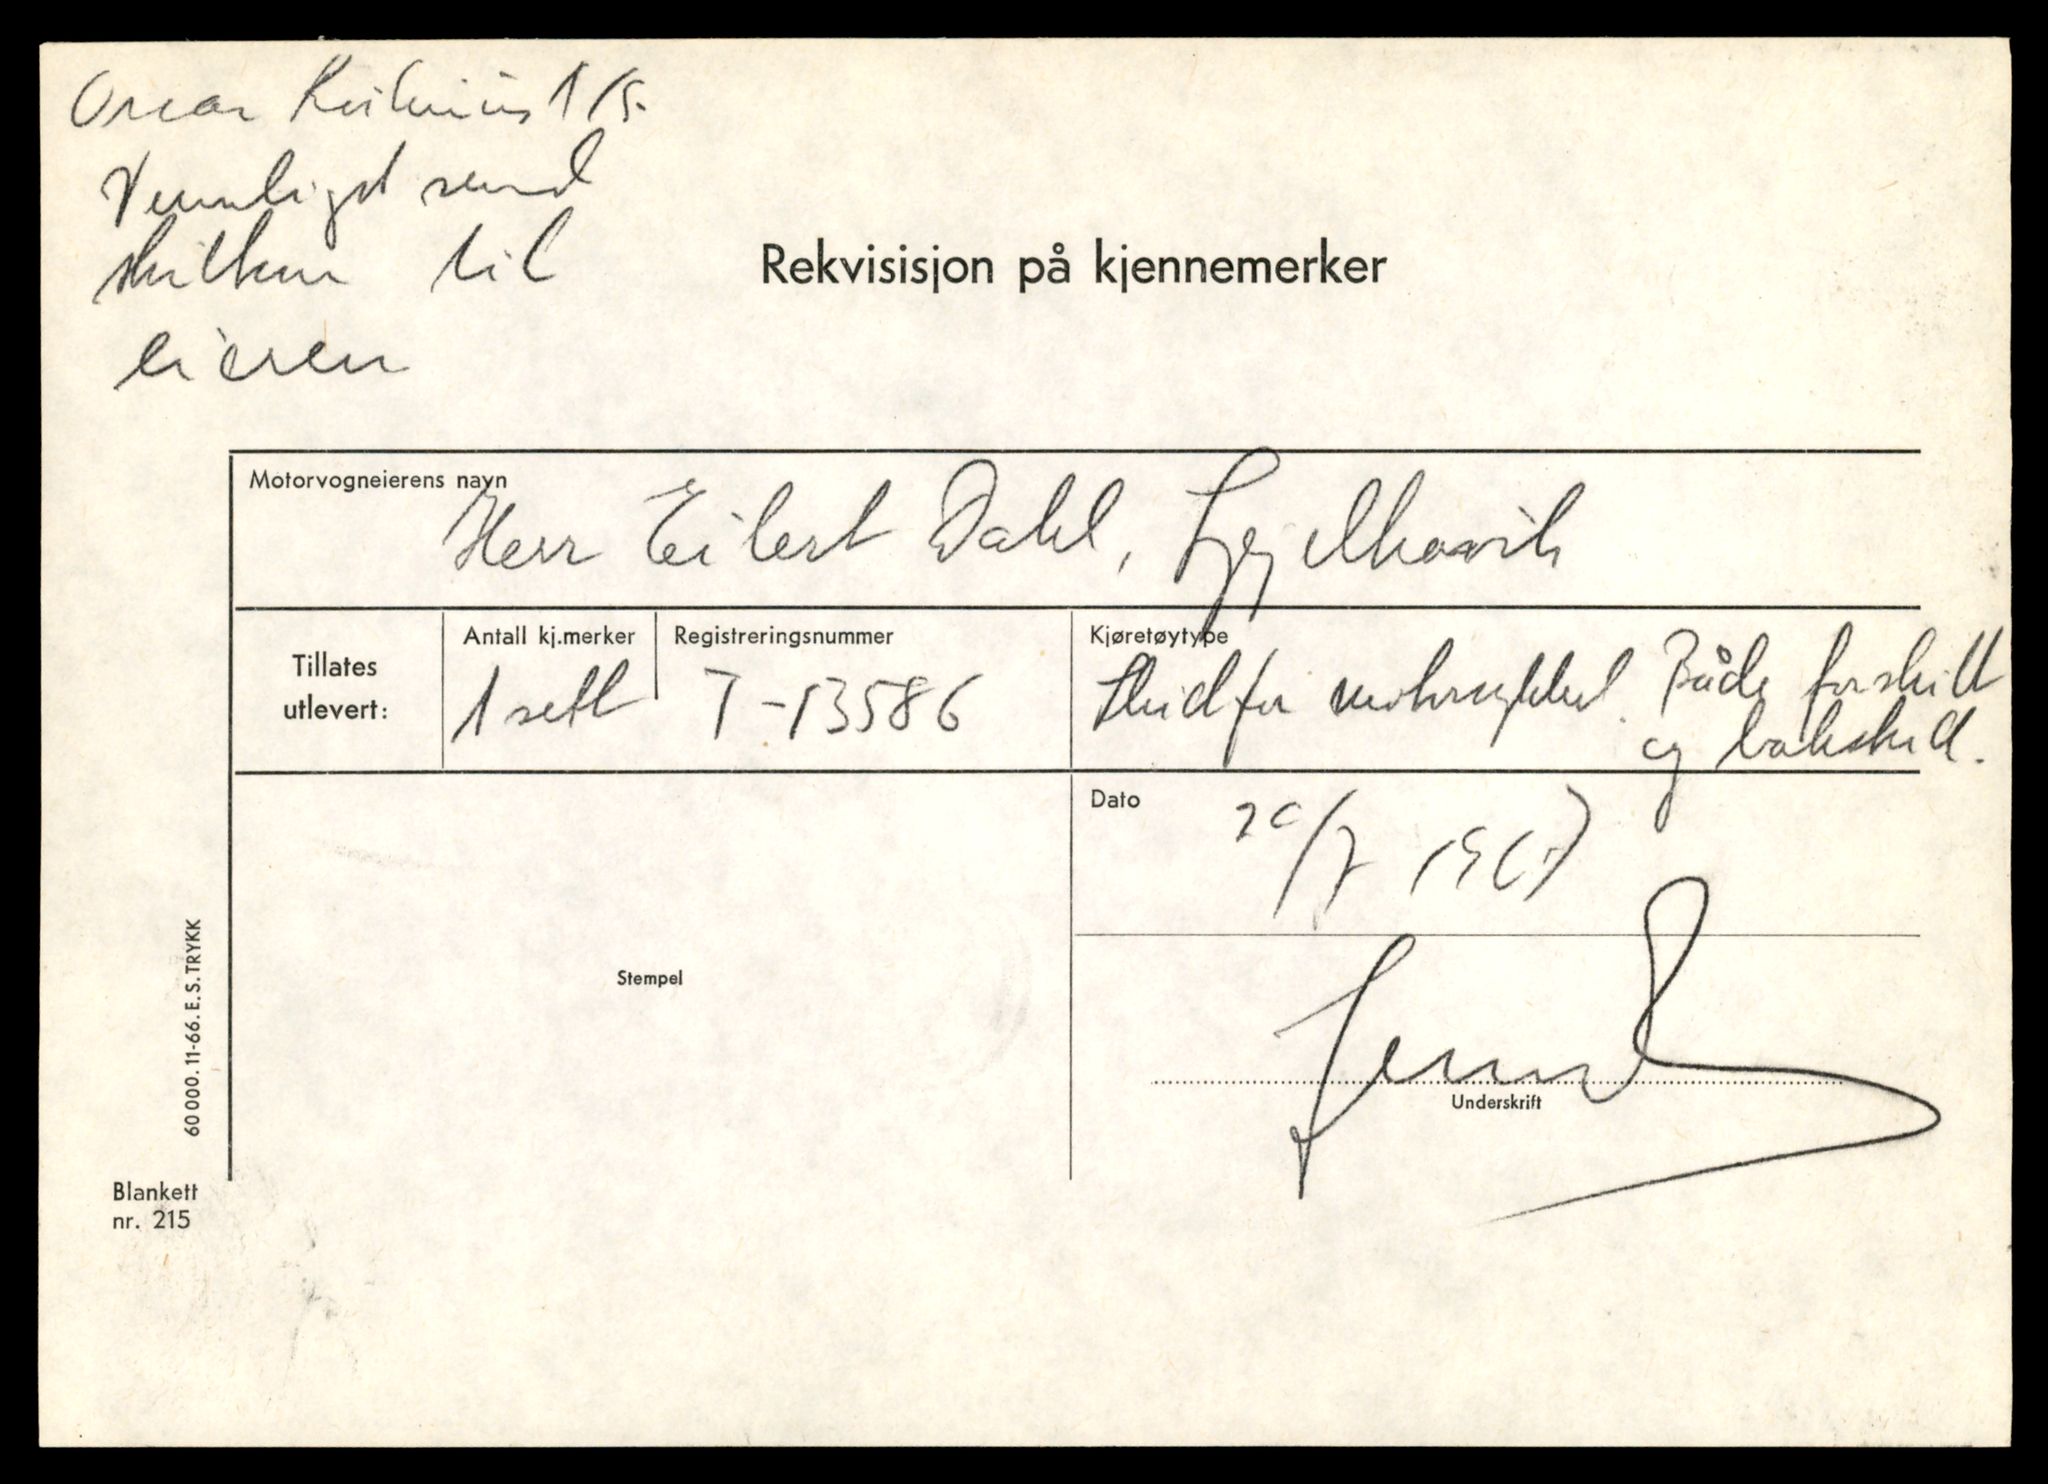 Oscar A/S.
Vennligst send
skiltene til
eieren
Rekvisisjon på kjennemerker
Motorvogneierens navn
Herr Eilert Dahl,
Tillates
utlevert:
Antall kj.merker
1 sett
Registreringsnummer
T-13586
Kjøretøytype
for motorsykkel. Både forskilt
og bakskilt.
Dato
20/7 1967
Stempel
Underskrift
60 000. 11-66. E. S. TRYKK
Blankett
nr. 215